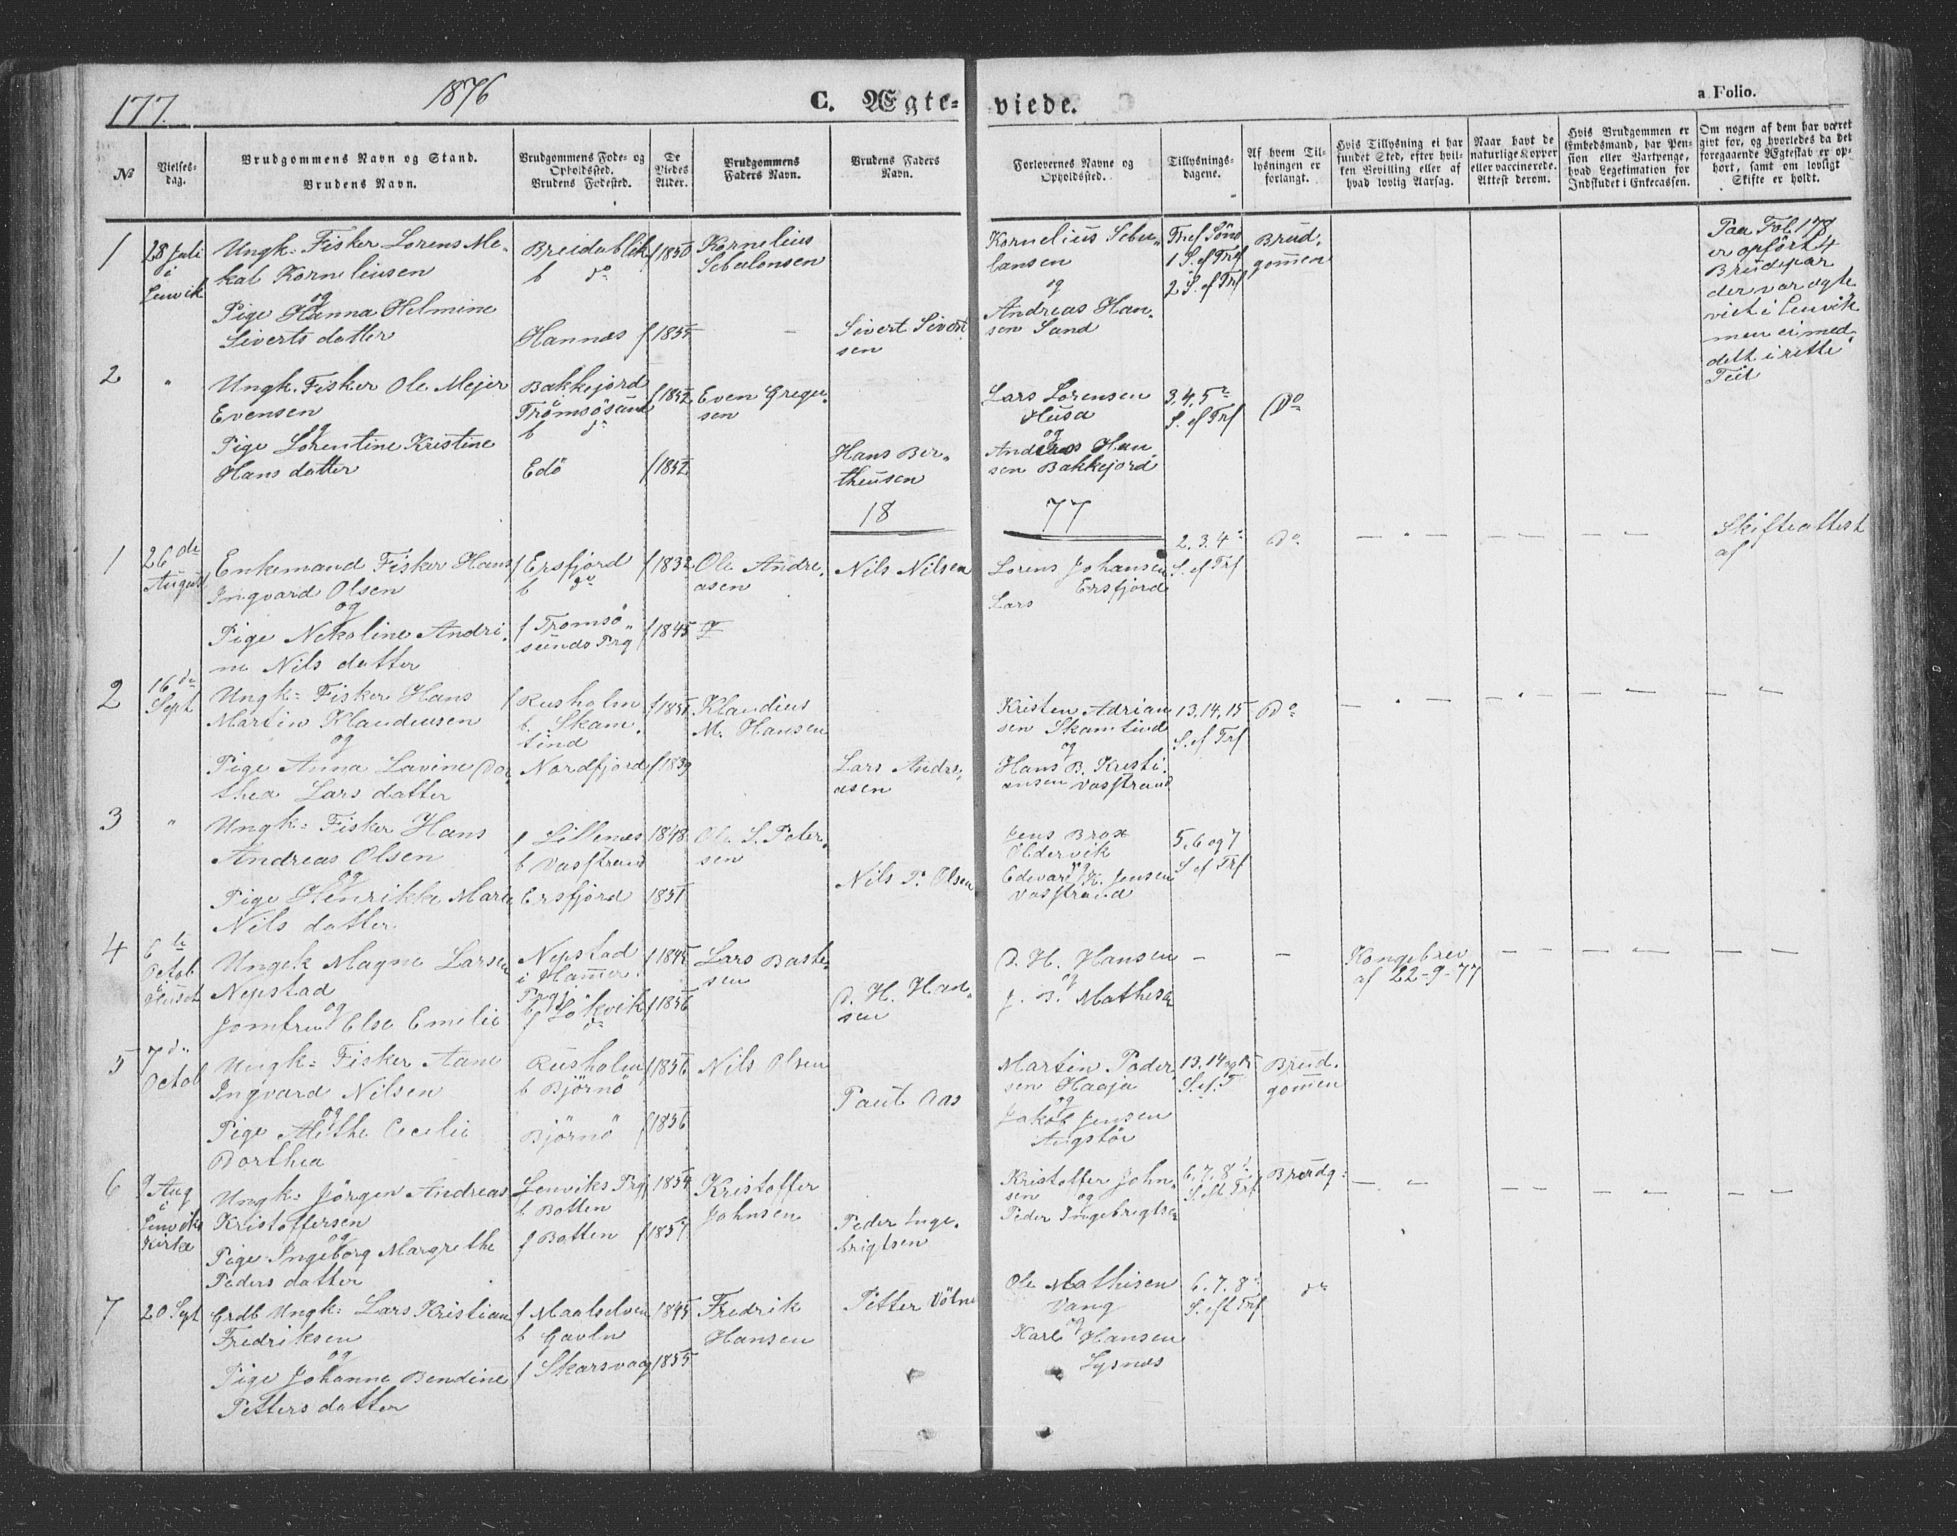 177.
1876
C. Ægte-
viede.
a Folio.
№
Vielses-
dag.
Brudgommens Navn og Stand.
Brudens Navn.
Brudgommens Føde- og
Opholdssted.
Brudens Fødested.
De
Viedes
Alder.
Brudgommens
Faders Navn.
Brudens Faders
Navn.
Forlovernes Navne og
Opholdssted.
Tillysnings-
dagene.
Af hvem Til-
lysningen er
forlangt.
Hvis Tillysning ei har
fundet Sted, efter hvil-
ken Bevilling eller af
hvad lovlig Aarsag.
Naar havt de
naturlige Kopper
eller vaccinerede.
Attest derom.
Hvis Brudgommen er
Embedsmand, har Pen-
sion eller Vartpenge,
hvad Legetimation for
Indskudet i Enkecassen.
Om nogen af dem har været
givt før, og hvorledes da det
foregaaende Ægteskab er op-
hørt, samt om lovligt
Skifte er holdt.
1
28 Juli
i
Lenvik
Ungk. Fisker Lorens Me-
kal Korneliusen
og
Pige Hanna Helmine
Siverts datter
Breidablik
b do
Hannæs
f 1850
f 1855
Kornelius
Sebulonsen
Sivert Sivert
sen
Kornelius Sebu-
lonsen
og
Andreas Han-
sen Sand
1 S. ef Trf
2 S. ef Trf
Brud-
gommen
Paa Fol 178
er opført 4
Brudepar
der var ægte
viet i Lenvik
men ei med
delt i rette
Tid
2
"
Ungk. Fisker Ole Mejer
Evensen
og
Pige Lorentine Kristine
Hans datter
Bakkejord
Tromsøsund
b do
Edø
f 1852
f 1852
Even Greger-
sen
Hans Ber-
theusen
Lars Lorensen
Husa
og
Anders Han-
sen Bakkejord
3, 4, 5
S. ef Trf
Do
18
77
1
26 de
August
Enkemand Fisker Hans
Ingvard Olsen
og
Pige Nekoline Andri-
ne Nils datter
f Ersfjord
b do
f Tromsø
sunds Prg
f 1832
f 1845
Ole Andre-
asen
Nils Nilsen
Lorens Johansen
Ersfjord
Lars
2, 3, 4
S. ef Trf
Do
Skifteattest
af
2
16 de
Sept
Ungk: Fisker Hans
Martin Klaudiusen
og
Pige Anna Lavine Do-
thea Lars datter
f Rusholm
b. Skam
tind
Nordfjord
f 1851
f 1839
Klaudius
M. Hansen
Lars Andre-
asen
Kristen Adrian
sen Skamtind
og
Hans B. Kristi-
ansen Vasstrand
13, 14, 15
S. ef Trf
Do
3
"
Ungk: Fisker Hans
Andreas Olsen
og
Pige Henrikke Marie
Nils datter
f Lillenes
b Vasstrand
Ersfjord
1848
1851
Ole S. Peter-
sen
Nils P. Olsen
Jens Brox
Oldervik
og
Edevard K. Jensen
Vasstrand
5, 6 og 7
S. ef Trf
4
6 te
Octob
Huset
Ungek Magne Larsen
Nepstad
og
Jomfru Else Emilie
Nepstad
i Hamer
Prgj
b Løkvik
f do
f 1842
f 1856
Lars Baste-
sen
D. H. Han-
sen
D. H. Hansen
og
J. B. Mathisen
Kongebrev
af 22-9-77
5
7 de
Octob
Ungk: Fisker Aane
Ingvard Nilsen
og
Pige Alethe Cecilie
Dorthea
Rusholm
b Bjørnø
Bjørnø
f 1856
f 1856
Nils Olsen
Paul Aas
Martin Peder
sen Haaja
og
Jakob Jensen
Angstør
13, 14 og 15
S. ef. T
Brud-
gommen
6
9 Aug
i
Lenviks
Kirke
Ungk: Jørgen Andreas
Kristoffersen
og
Pige Ingeborg Margrethe
Peders datter
Lenviks Prgj
b Botten
f Botten
1854
f 1857
Kristoffer
Johnsen
Peder Inge-
brigtsen
Kristoffer John-
sen og
Peder Ingebrigtsen
6, 7, 8
S. M. Trf
Brudg:
7
20 Sept
Grdb Ungk: Lars Kristian
Fredriksen
og
Pige Johanne Bendine
Petters datter
f Maalselven
b Gavln
f Skarsvaag
1845
1855
Fredrik
Hansen
Petter Vølne
Ole Mathisen
Vang
og
Karl Hansen
Lysnes
6, 7, 8
S. eft Trf
do